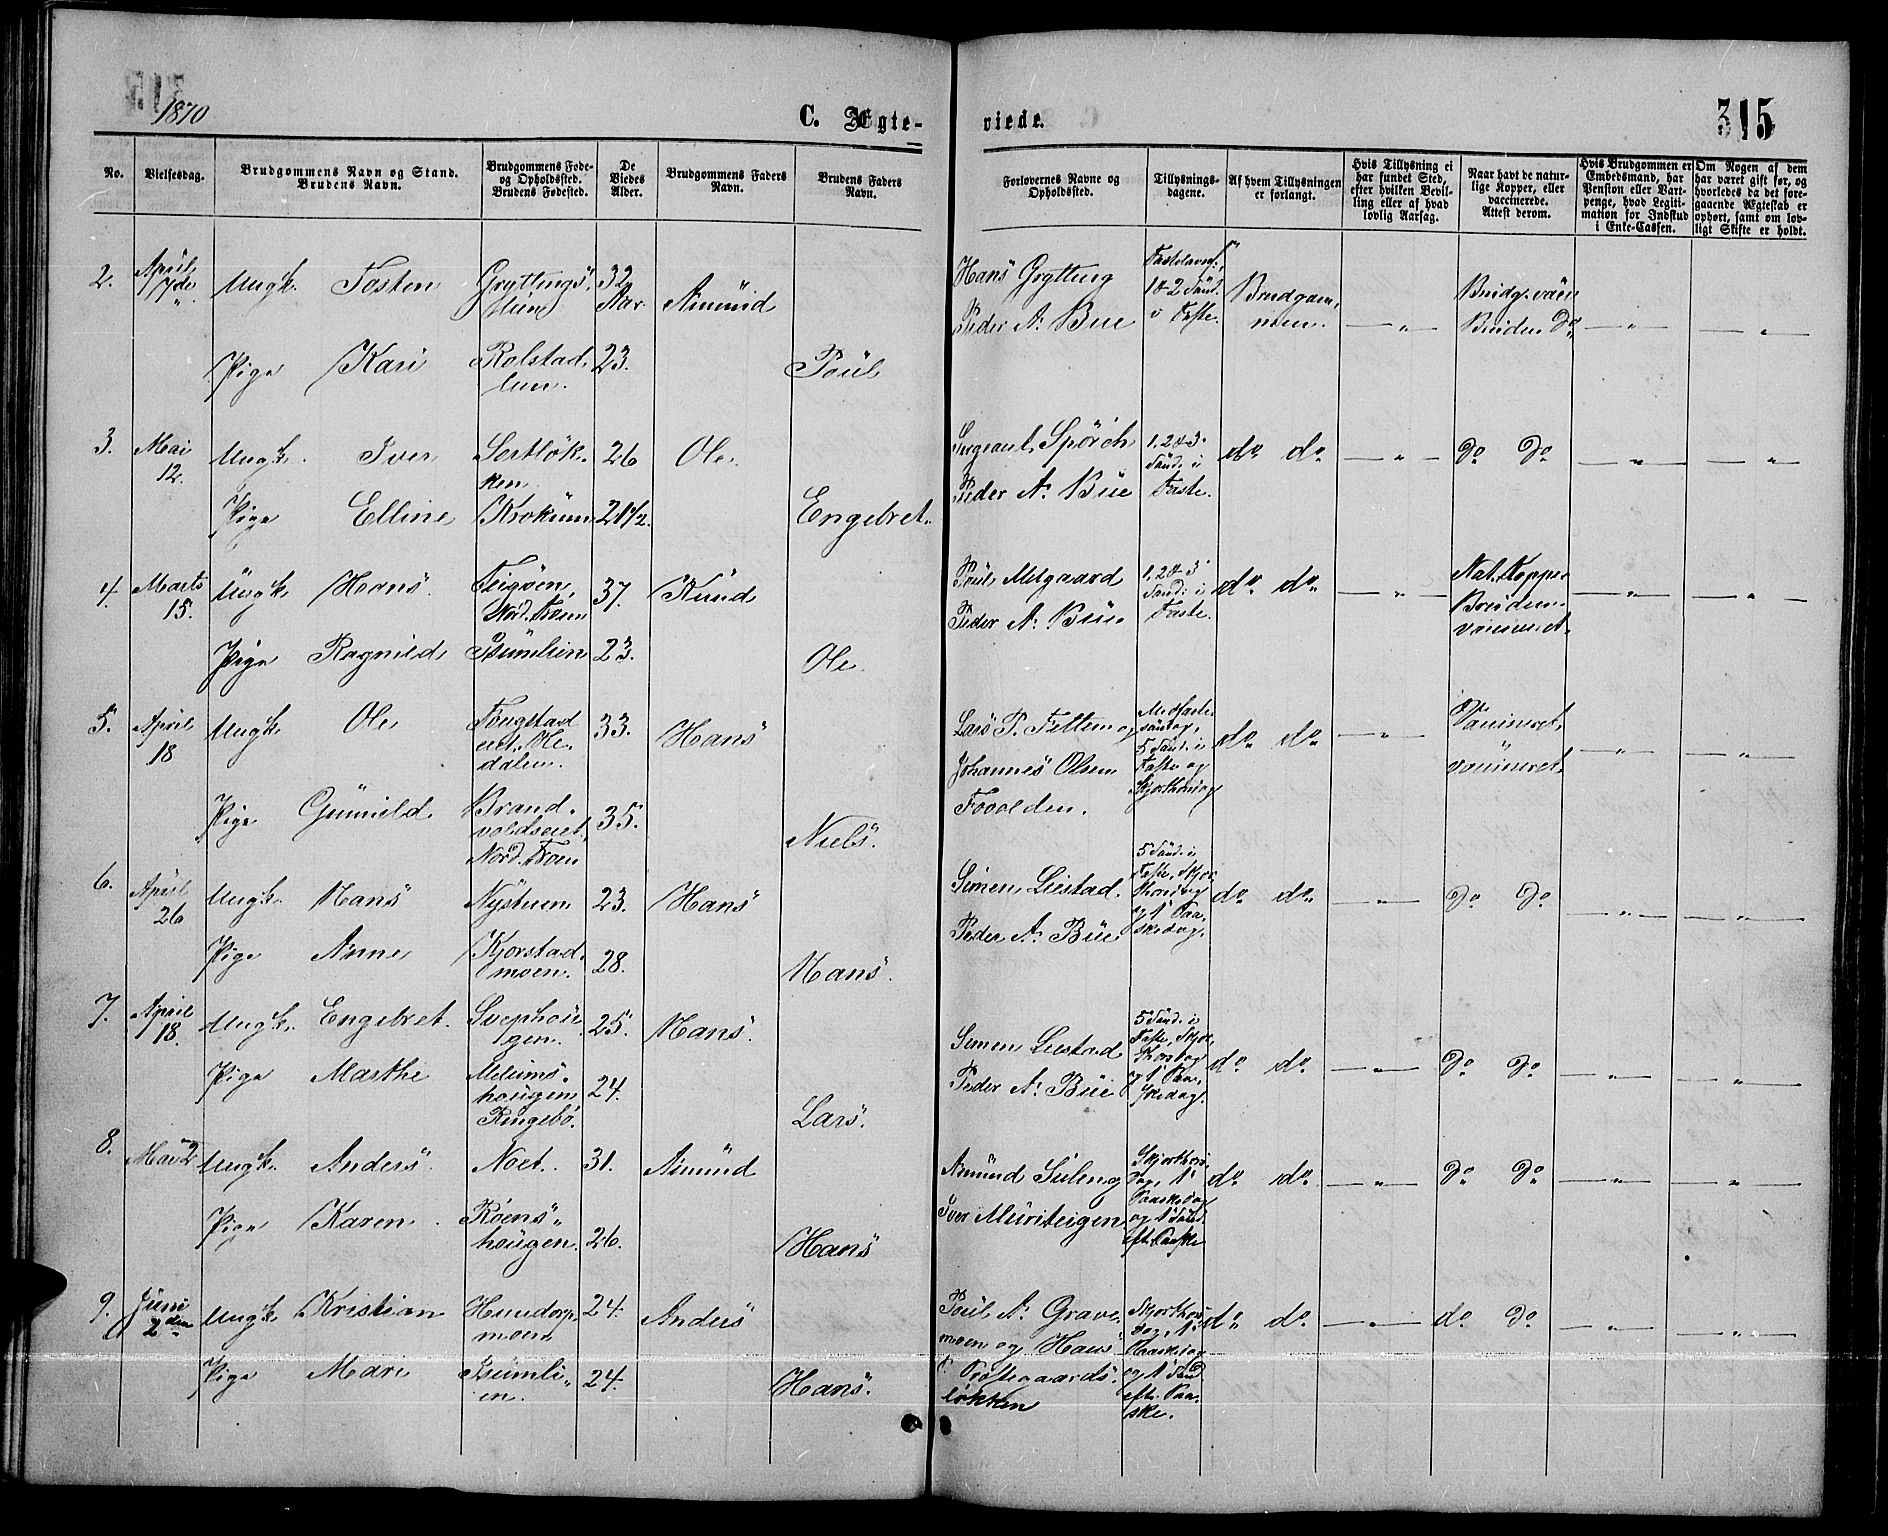 1870
C. Ægte-
viede.
315
No.
Vielsesdag.
Brudgommens Navn og Stand.
Brudens Navn.
Brudgommens Føde-
og Opholdssted.
Brudens Fødested.
De
Viedes
Alder.
Brudgommens Faders
Navn.
Brudens Faders
Navn.
Forlovernes Navne og
Opholdssted.
Tillysnings-
dagene.
Af hvem Tillysningen
er forlangt.
Hvis Tillysning ei
har fundet Sted,
efter hvilken Bevil-
ling eller af hvad
lovlig Aarsag.
Naar havt de natur-
lige Kopper, eller
vaccinerede.
Attest derom.
Hvis Brudgommen er
Embedsmand, har
Pension eller Vart-
penge, hvad Legiti-
mation for Indskud
i Enke-Cassen.
Om Nogen af dem
har været gift før, og
hvorledes da det fore-
gaaende Ægteskab er
ophørt, samt om lov-
ligt Skifte er holdt.
2. April Ungk. Tosten Gryttings 32 Aar Amund
Hans Grytting
Peder A. Bue
1 & 2 Sønd. i Faste.
Brudgommen.
Pige Kari Rolstad 23. Poul
3. Mai 12. Ungk. Iver 26 Ole
Pige Elline Krokum 21½. Engebret
Sergeant Spørch
Peder A. Bue
1, 2 & 3 Sønd. i Faste.
do do
do do
4. Marts 15. Ungk. Hans Teigøen, Nord. Froen 37. Knud
Pige Ragnild 23. Ole
Poul Melgaard
Peder A. Bue
1, 2 & 3 Sønd. i Faste.
do do
Nat. Kopper
Bruden
5. April 18 Ungk. Ole 33. Hans
Pige Gunild Brandvoldseiet, Nord. Froen 35. Niels
Lars P.
Johannes Olsen
5 Sønd. i Faste og
Skjærthorsdag
do do
6. April 26 Ungk. Hans Nystuen 23. Hans
Pige Anne Kjorstadmoen. 28. Hans
Simen Listad
Peder A. Bue
5 Sønd. i Faste, Skjærthorsdag og 1 Paaskedag.
do do
do do
7. April 18. Ungk. Engebret Svephougen. 25. Hans
Pige Marthe Melumshougen Ringebo. 24. Lars
Simen Listad
Peder A. Bue
5 Sønd. i Faste, Skjærthorsdag og 1 Paaskedag.
do do
do do
8. Mai 2 Ungk. Anders Noet. 31. Amund
Pige Karen Roenshougen. 26. Hans
Amund Suleng
Iver Muriteigen
Skjærthorsdag, 1 Paaskedag og 1 Sønd. eft. Paaske
do do
do do
9. Juni 2den Ungk. Kristian Hundorpmoen 24. Anders
Pige Mari 24. Hans
Poul A. Gravemoen og Hans
løkken
Skjærthorsdag, 1 Paaskedag og 1 Sønd. eft. Paaske.
do do
do do